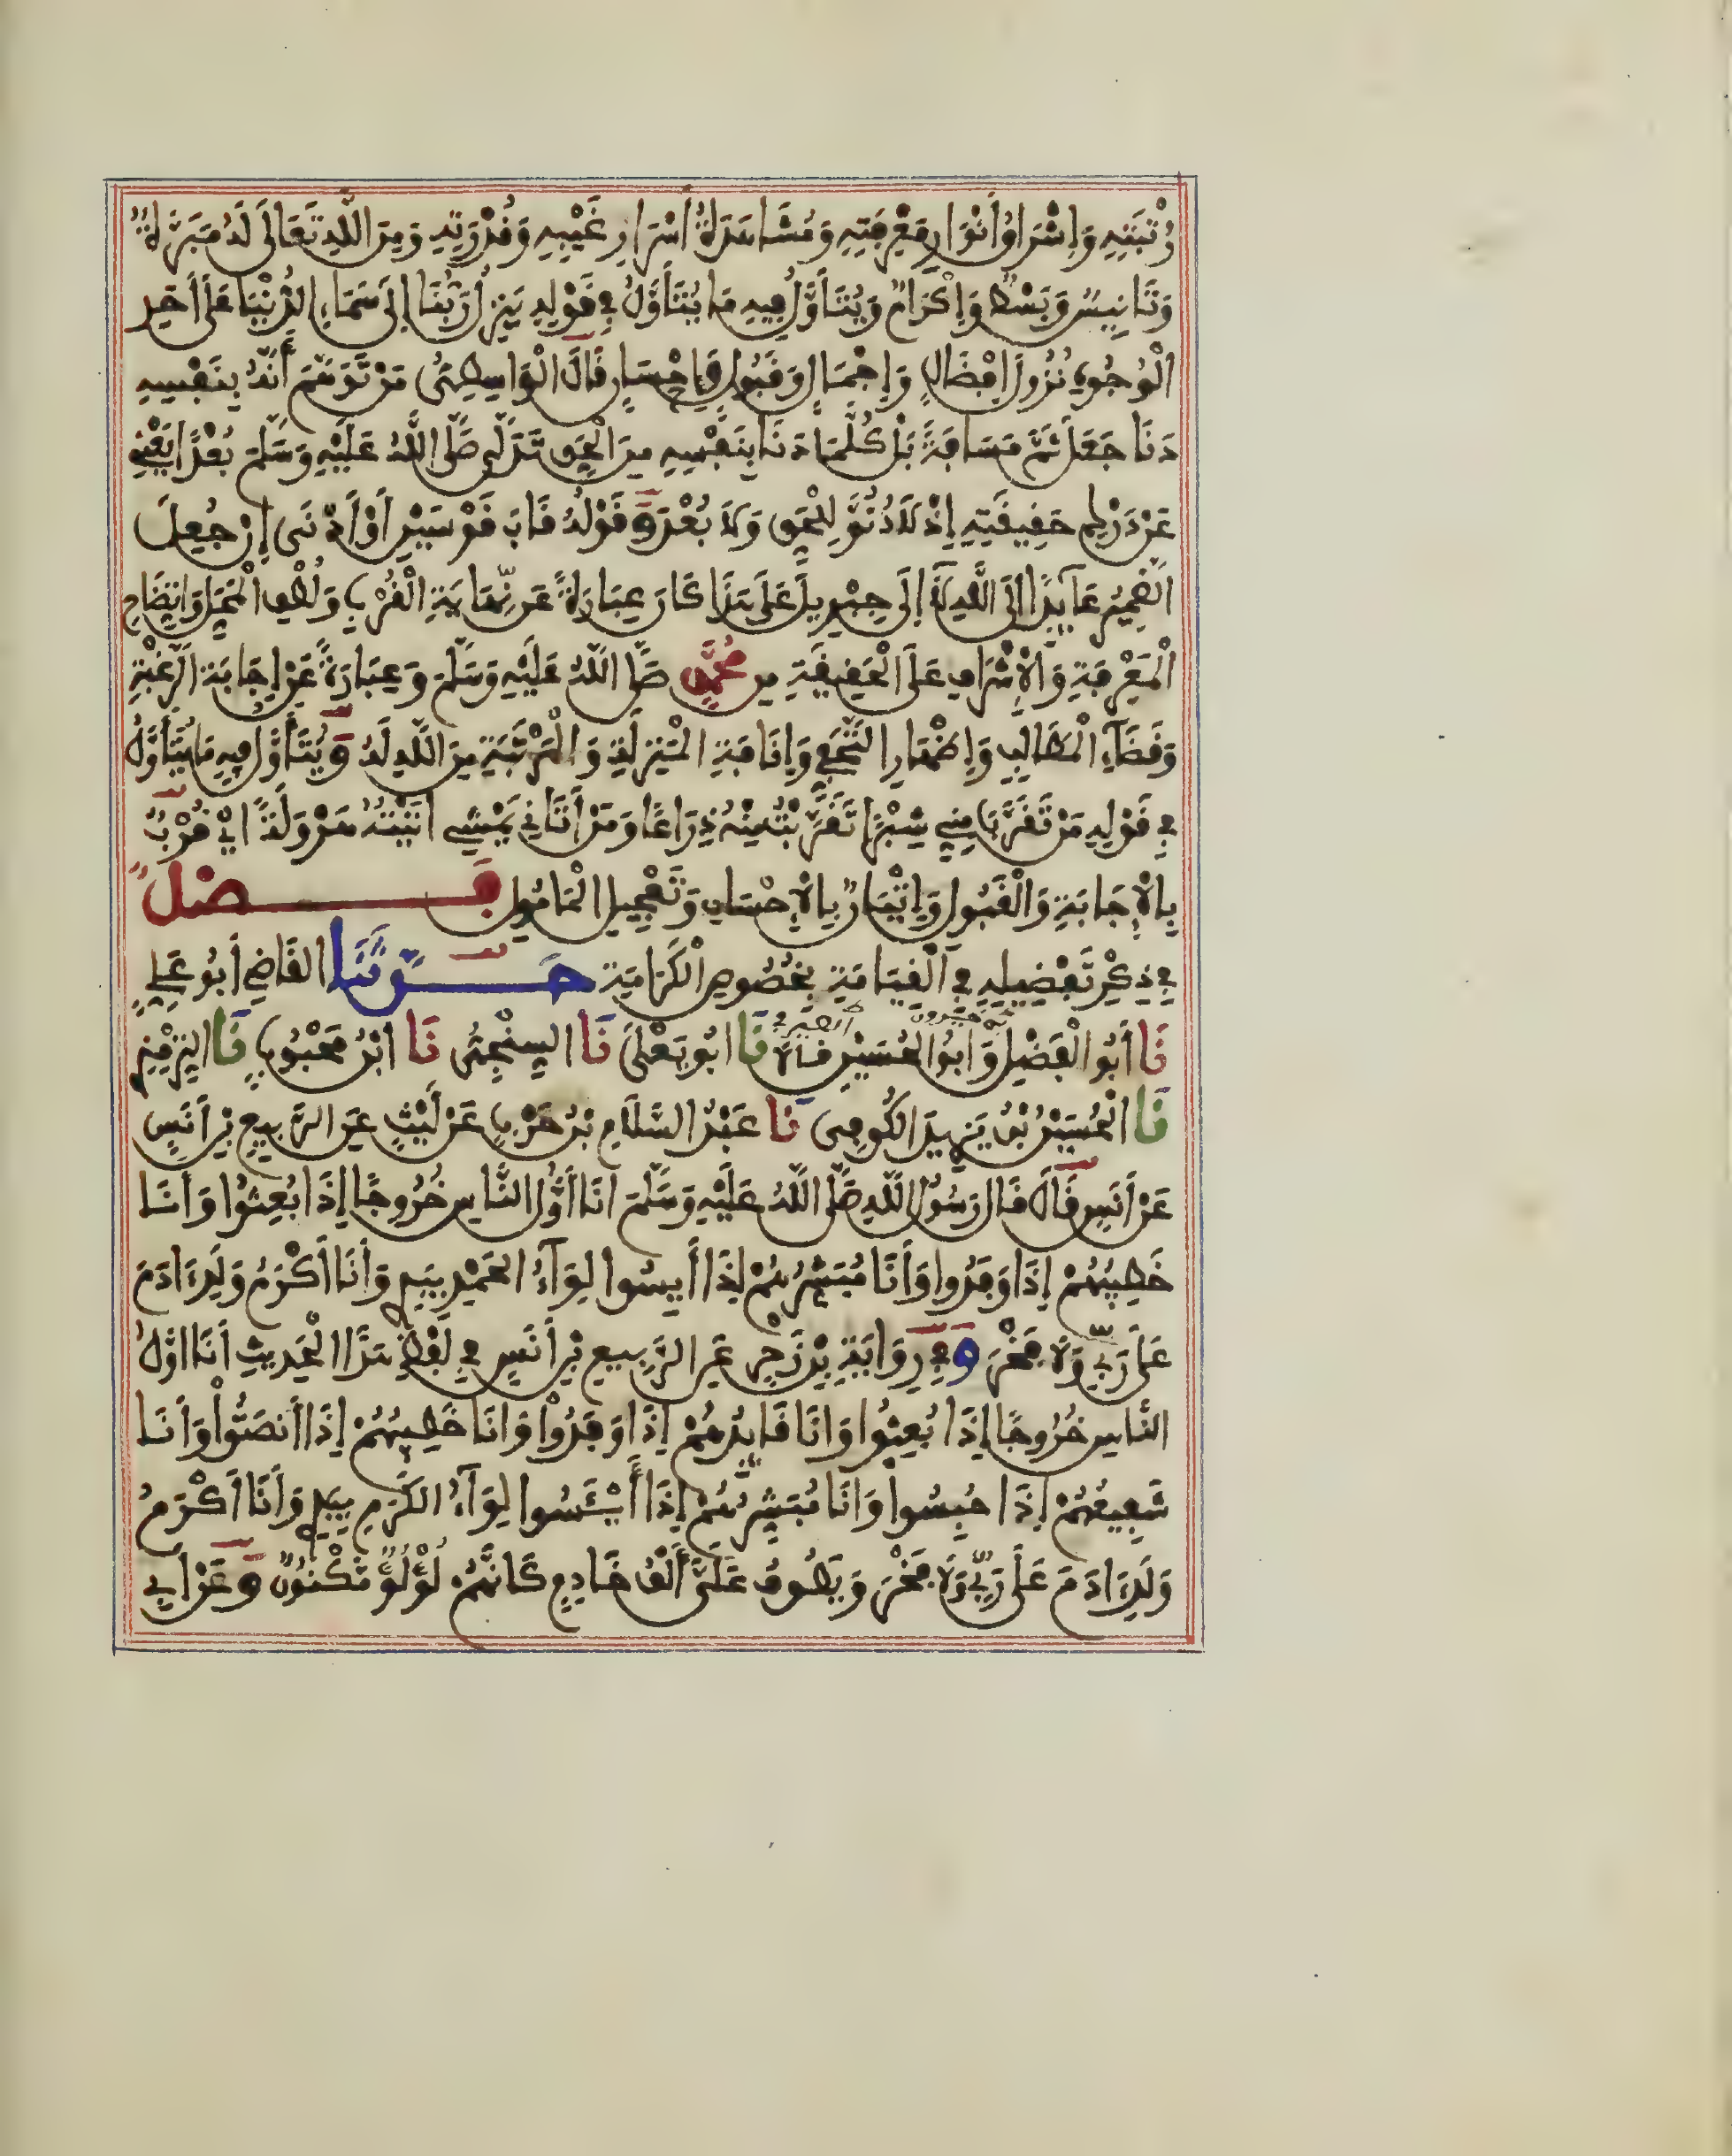 رُتْبَتِهِ وَإِشْرَاقُ أَنْوَارِ مَعْرِفَتِهِ وَمُشَاهَدَةُ أَسْرَارِ غَيْبِهِ وَقُدْرَتِهِ وَمِنَ اللَّهِ تَعَالَى لَهُ مَبَرَّةٌ
وَتَانِيسٌ وَبَسْطٌ وَإِكْرَامٌ وَيُتَأَوَّلُ فِيهِ مَا يُتَأَوَّلُ فِي قَوْلِهِ يَنْزِلُ رَبُّنَا إِلَى سَمَاءِ الدُّنْيَا عَلَى أَحَدِ
الْوُجُوهِ نُزُولَ إِفْضَالٍ وَإِجْمَالٍ وَقَبُولٍ وَإِحْسَانٍ قَالَ الْوَاسِطِيُّ مَنْ تَوَهَّمَ أَنَّهُ بِنَفْسِهِ
دَنَا جَعَلَ ثَمَّ مَسَافَةً بَلْ كُلَّمَا دَنَا بِنَفْسِهِ مِنَ الْحَقِّ تَدَلَّى صَلَّى اللَّهُ عَلَيْهِ وَسَلَّمَ بُعْدًا يَعْنِي
عَنْ دَرْكِ حَقِيقَتِهِ إِذْ لَا دُنُوَّ لِلْحَقِّ وَلَا بُعْدَ وَقَوْلُهُ قَابَ قَوْسَيْنِ أَوْ أَدْنَى إِنْ جُعِلَ
الضَّمِيرُ عَائِدًا إِلَى اللَّهِ لَا إِلَى جِبْرِيلَ عَلَى هَذَا كَانَ عِبَارَةً عَنْ نِهَايَةِ الْقُرْبِ وَلُطْفِ الْمَحَلِّ وَإِيضَاحِ
الْمَعْرِفَةِ وَالْإِشْرَافِ عَلَى الْحَقِيقَةِ مِن مُحَمَّدٍ صَلَّى اللَّهُ عَلَيْهِ وَسَلَّمَ وَعِبَارَةً عَنْ إِجَابَةِ الرَّغْبَةِ
وَقَضَاءِ الْمَطَالِبِ وَإِظْهَارِ التَّحَفِّي وَإِنَافَةِ الْمَنْزِلَةِ وَالْمَرْتَبَةِ مِنَ اللَّهِ لَهُ وَيُتَأَوَّلُ فِيهِ مَا يُتَأَوَّلُ
فِي قَوْلِهِ مَنْ تَقَرَّبَ مِنِّي شِبْرًا تَقَرَّبْتُ مِنْهُ ذِرَاعًا وَمَنْ أَتَانِي يَمْشِي أَتَيْتُهُ هَرْوَلَةً أَيْ قُرْبٌ
بِالْإِجَابَةِ وَالْقَبُولِ وَإِتْيَانٌ بِالْإِحْسَانِ وَتَعْجِيلِ الْمَامُولِ فَصْلٌ
فِي ذِكْرِ تَفْضِيلِهِ فِي الْقِيَامَةِ بِخُصُوصِ الْكَرَامَةِ حَدَّثَنَا الْقَاضِي أَبُو عَلِيٍّ
نَا أَبُو الْفَضْلِ وَأَبُو الْحُسَيْنِ قَالَا نَا أَبُو يَعْلَى نَا السِّنْجِيُّ نَا ابْنُ مَحْبُوبٍ نَا التِّرْمِذِيُّ
نَا الْحُسَيْنُ بْنُ يَزِيدَ الْكُوفِيُّ نَا عَبْدُ السَّلَامِ بْنُ حَرْبٍ عَنْ لَيْثٍ عَنِ الرَّبِيعِ بْنِ أَنَسٍ
عَنْ أَنَسٍ قَالَ قَالَ رَسُولُ اللَّهِ صَلَّى اللَّهُ عَلَيْهِ وَسَلَّمَ أَنَا أَوَّلُ النَّاسِ خُرُوجًا إِذَا بُعِثُوا وَأَنَا
خَطِيبُهُمْ إِذَا وَفَدُوا وَأَنَا مُبَشِّرُهُمْ إِذَا أَيِسُوا لِوَاءُ الْحَمْدِ بِيَدِي وَأَنَا أَكْرَمُ وَلَدِ آدَمَ
عَلَى رَبِّي وَلَا فَخْرَ وَفِي رِوَايَةِ بْنِ زَحْرٍ عَنِ الرَّبِيعِ بْنِ أَنَسٍ فِي لَفْظِ هَذَا الْحَدِيثِ أَنَا أَوَّلُ
النَّاسِ خُرُوجًا إِذَا بُعِثُوا وَأَنَا قَائِدُهُمْ إِذَا وَفَدُوا وَأَنَا خَطِيبُهُمْ إِذَا أَنصَتُوا وَأَنَا
شَفِيعُهُمْ إِذَا حُبِسُوا وَأَنَا مُبَشِّرُهُمْ إِذَا أَيْئَسُوا لِوَاءُ الْكَرَمِ بِيَدِي وَأَنَا أَكْرَمُ
وَلَدِ آدَمَ عَلَى رَبِّي وَلَا فَخْرَ وَيَطُوفُ عَلَيَّ أَلْفُ خَادِمٍ كَأَنَّهُمْ لُؤْلُؤٌ مَكْنُونٌ وَعَنْ أَبِي